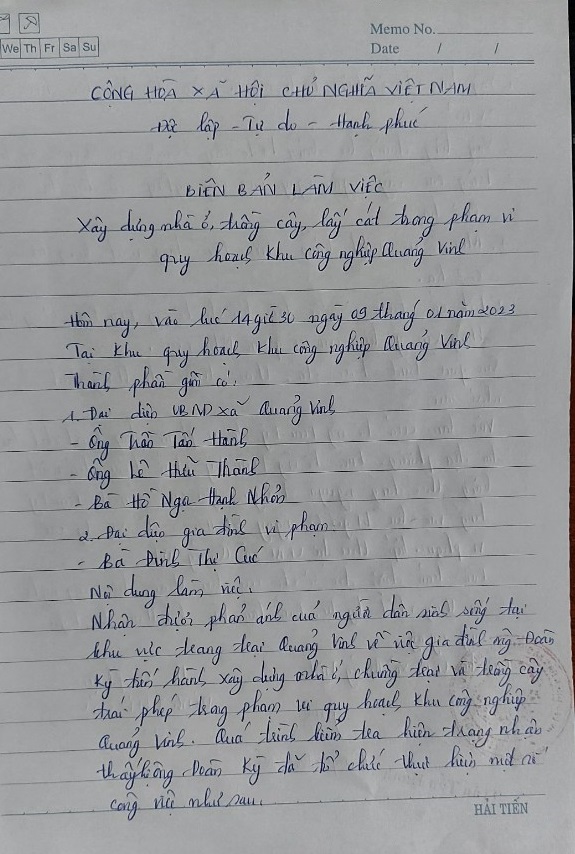 We Th Fr Sa Su
Memo No.
Date / /
CỘNG HÒA XÃ HỘI CHỦ NGHĨA VIỆT NAM
Độc lập - Tự do - Hạnh phúc
BIÊN BẢN LÀM VIỆC
Xây dựng nhà ở, trồng cây, lấy cát trong phạm vi
quy hoạch khu công nghiệp Quảng Vinh
Hôm nay, vào lúc 14 giờ 30 ngày 09 tháng 01 năm 2023
Tại khu quy hoạch khu công nghiệp Quảng Vinh
Thành phần gồm có:
1. Đại diện UBND xã Quảng Vinh
- Ông Trần Tấn Hành
- Ông Lê Hữu Thành
- Bà Hồ Ngạ Hạnh Nhơn
2. Đại diện gia đình vi phạm
- Bà Đinh Thị Cúc
Nội dung làm việc.
Nhận được phản ánh của người dân sinh sống tại
khu vực trang trại Quảng Vinh về việc gia đình ông Đoàn
Kỳ tiến hành xây dựng nhà ở, chuồng trại và trồng cây
trái phép trong phạm vi quy hoạch khu công nghiệp
Quảng Vinh. Quá trình kiểm tra hiện trạng nhận
thấy ông Đoàn Kỳ đã tổ chức thực hiện một số
công việc như sau.
HẢI TIẾN